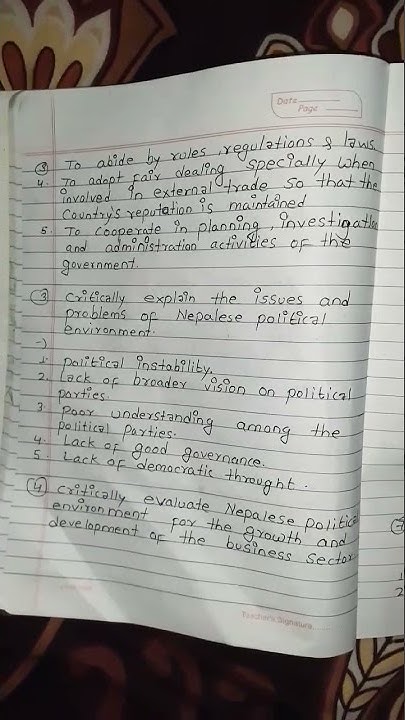 Date
Page
③ To abide by rules, regulations & laws.
4. To adopt fair dealing specially when
involved in external trade so that the
Country's reputation is maintained
5. To cooperate in planning, investigation
and administration activities of the
government.
③ Critically explain the issues and
problems of Nepalese political
environment.
→)
1. political instability.
2. Lack of broader vision on political
parties.
3. poor understanding among the
political parties.
4. Lack of good governance.
5. Lack of democratic throught.
④ critically evaluate Nepalese political
environment for the growth and
development of the business sector
Teacher's Signature
1
2